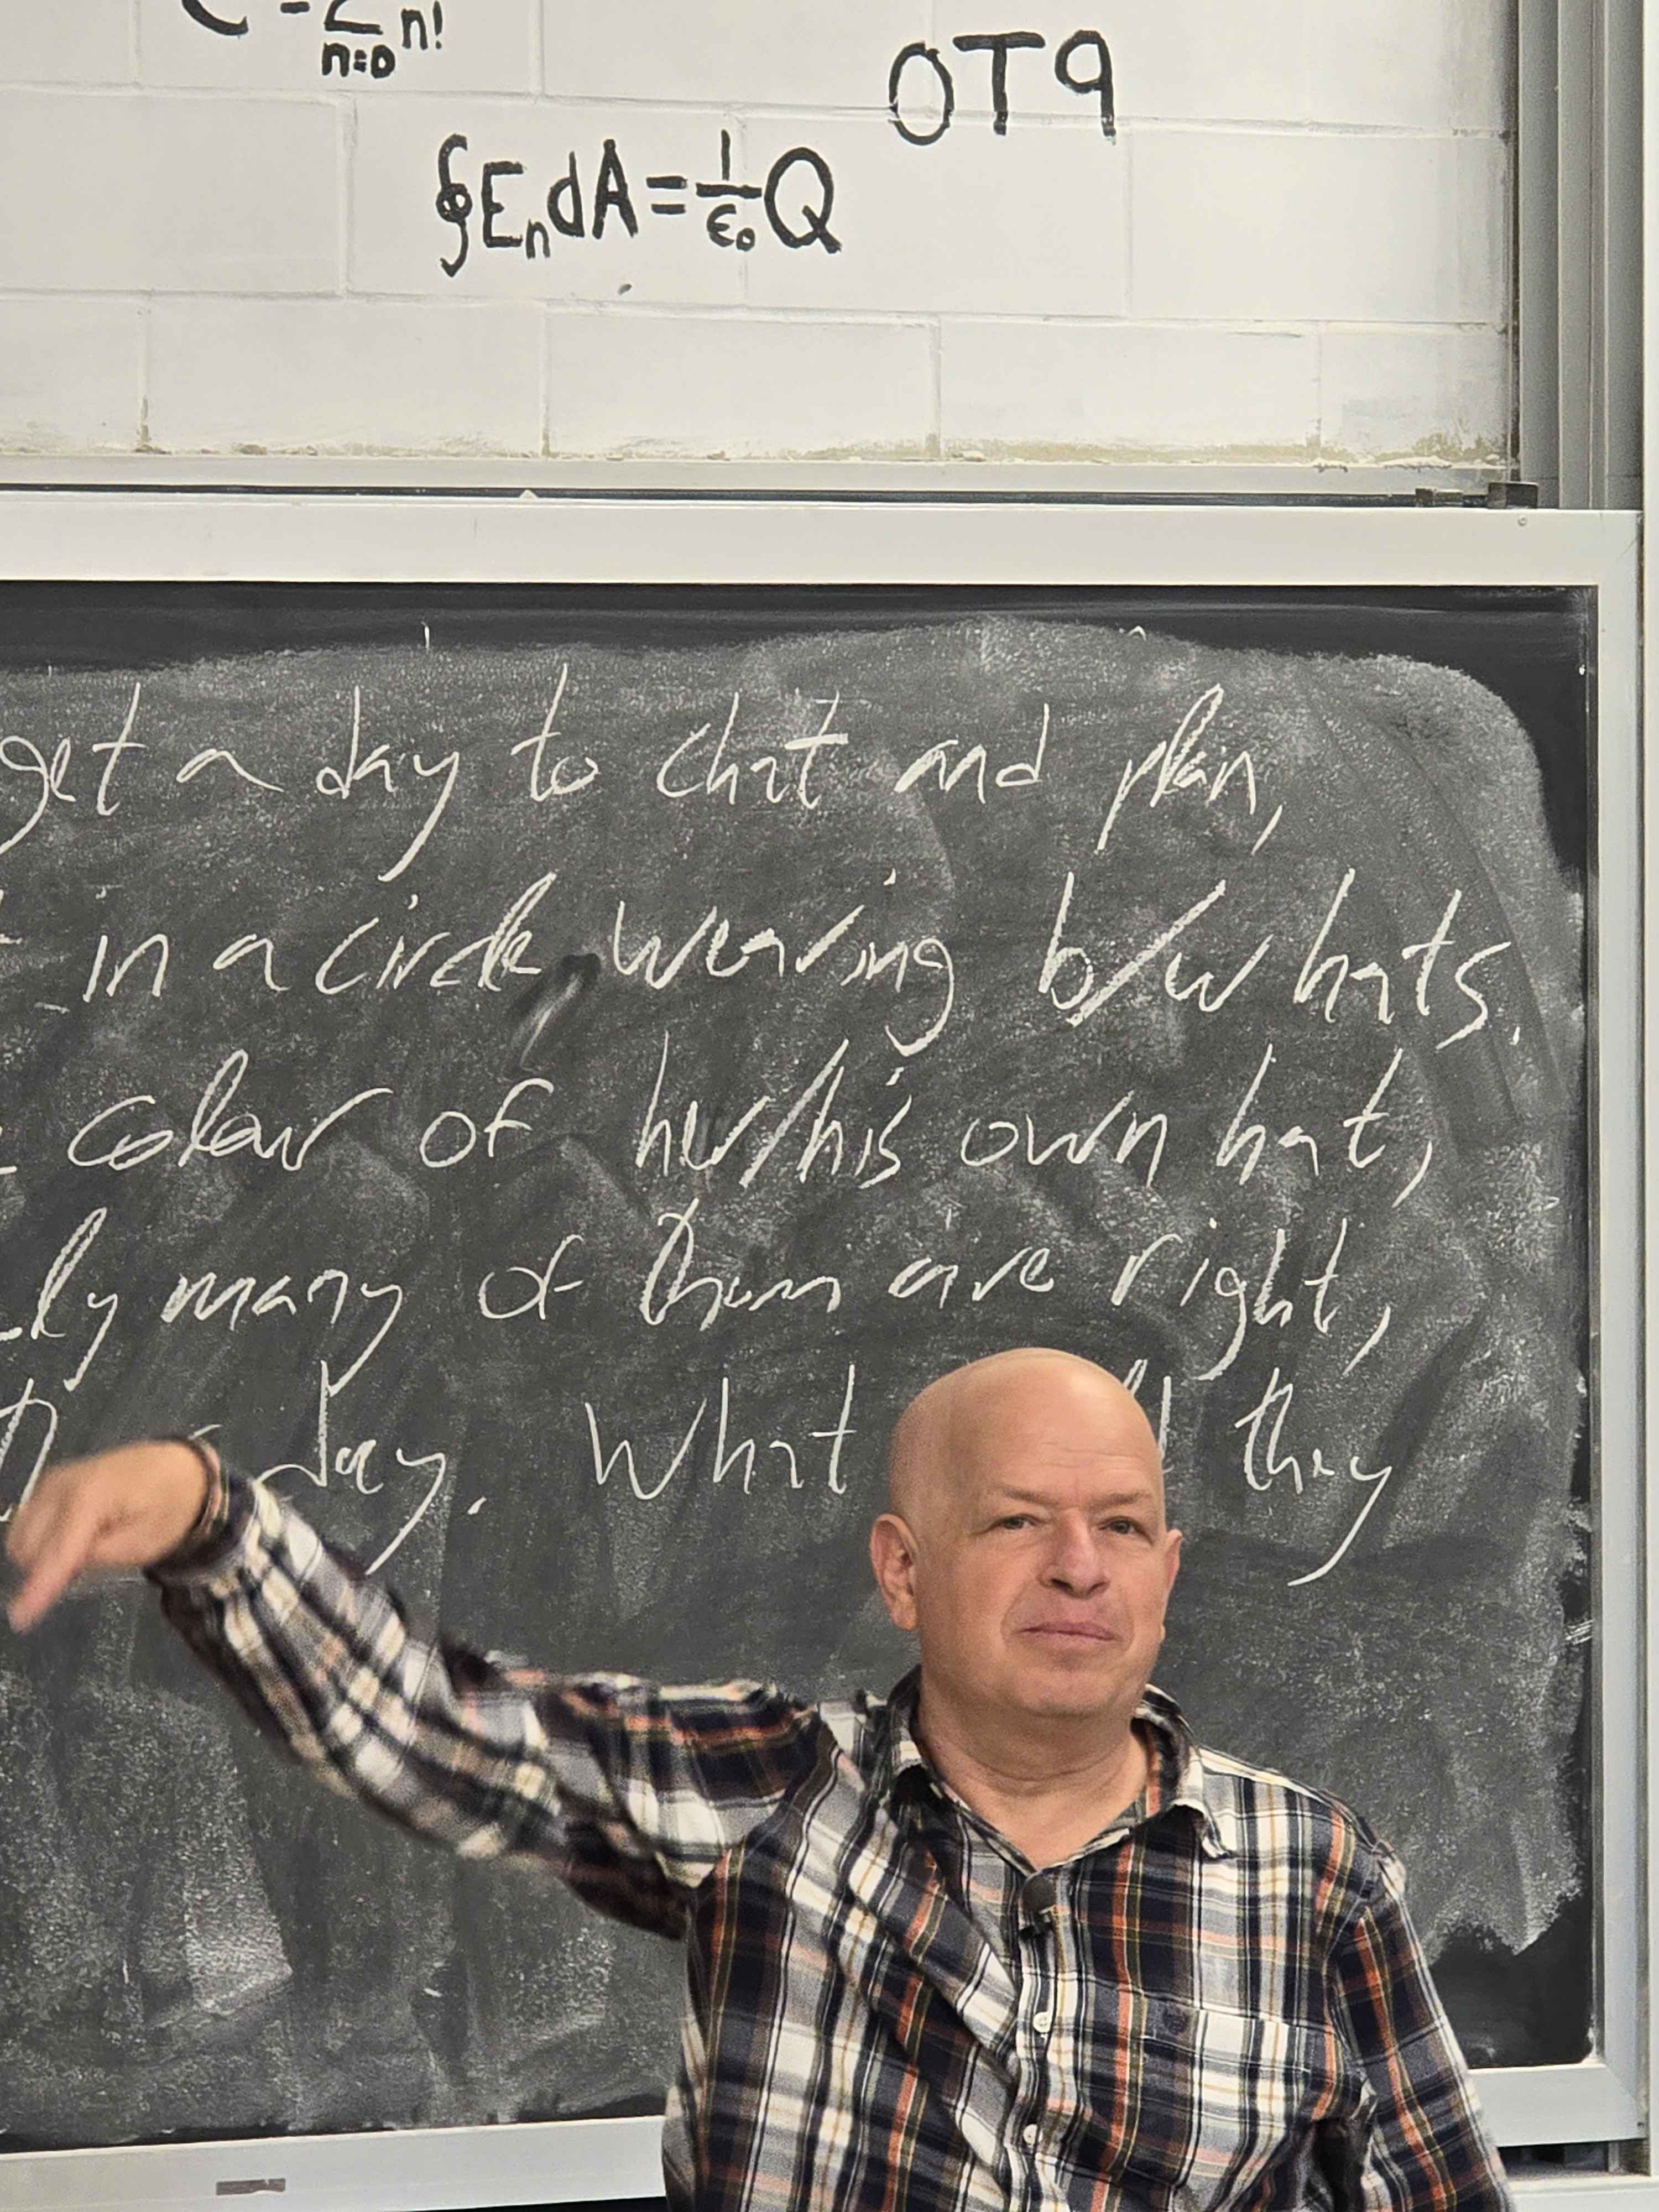 e = Σ n=0 n!
OT9
∮EₙdA = 1/ε₀ Q
get a day to chat and plan,
in a circle wearing b/w hats.
colour of her/his own hat,
ly many of them are right,
day. What they